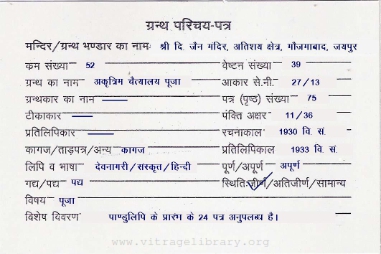 ग्रन्थ परिचय-पत्र
मन्दिर/ग्रन्थ भण्डार का नामः श्री दि. जैन मंदिर, अतिशय क्षेत्र, मौजमाबाद, जयपुर
क्रम संख्या 52 वेष्टन संख्या 39
ग्रन्थ का नाम अकृत्रिम चैत्यालय पूजा आकार से.मी. 27/13
ग्रन्थकार का नाम पत्र (पृष्ठ) संख्या 75
टीकाकार पंक्ति अक्षर 11/36
प्रतिलिपिकार रचनाकाल 1930 वि. सं.
कागज/ताड़पत्र/अन्य कागज प्रतिलिपिकाल 1933 वि. सं.
लिपि व भाषा देवनागरी/संस्कृत/हिन्दी पूर्ण/अपूर्ण अपूर्ण
गद्य/पद्य पद्य स्थितिःजीर्ण/अतिजीर्ण/सामान्य
विषय पूजा
विशेष विवरण पाण्डुलिपि के प्रारंभ के 24 पत्र अनुपलब्ध है।
www.vitragelibrary.org